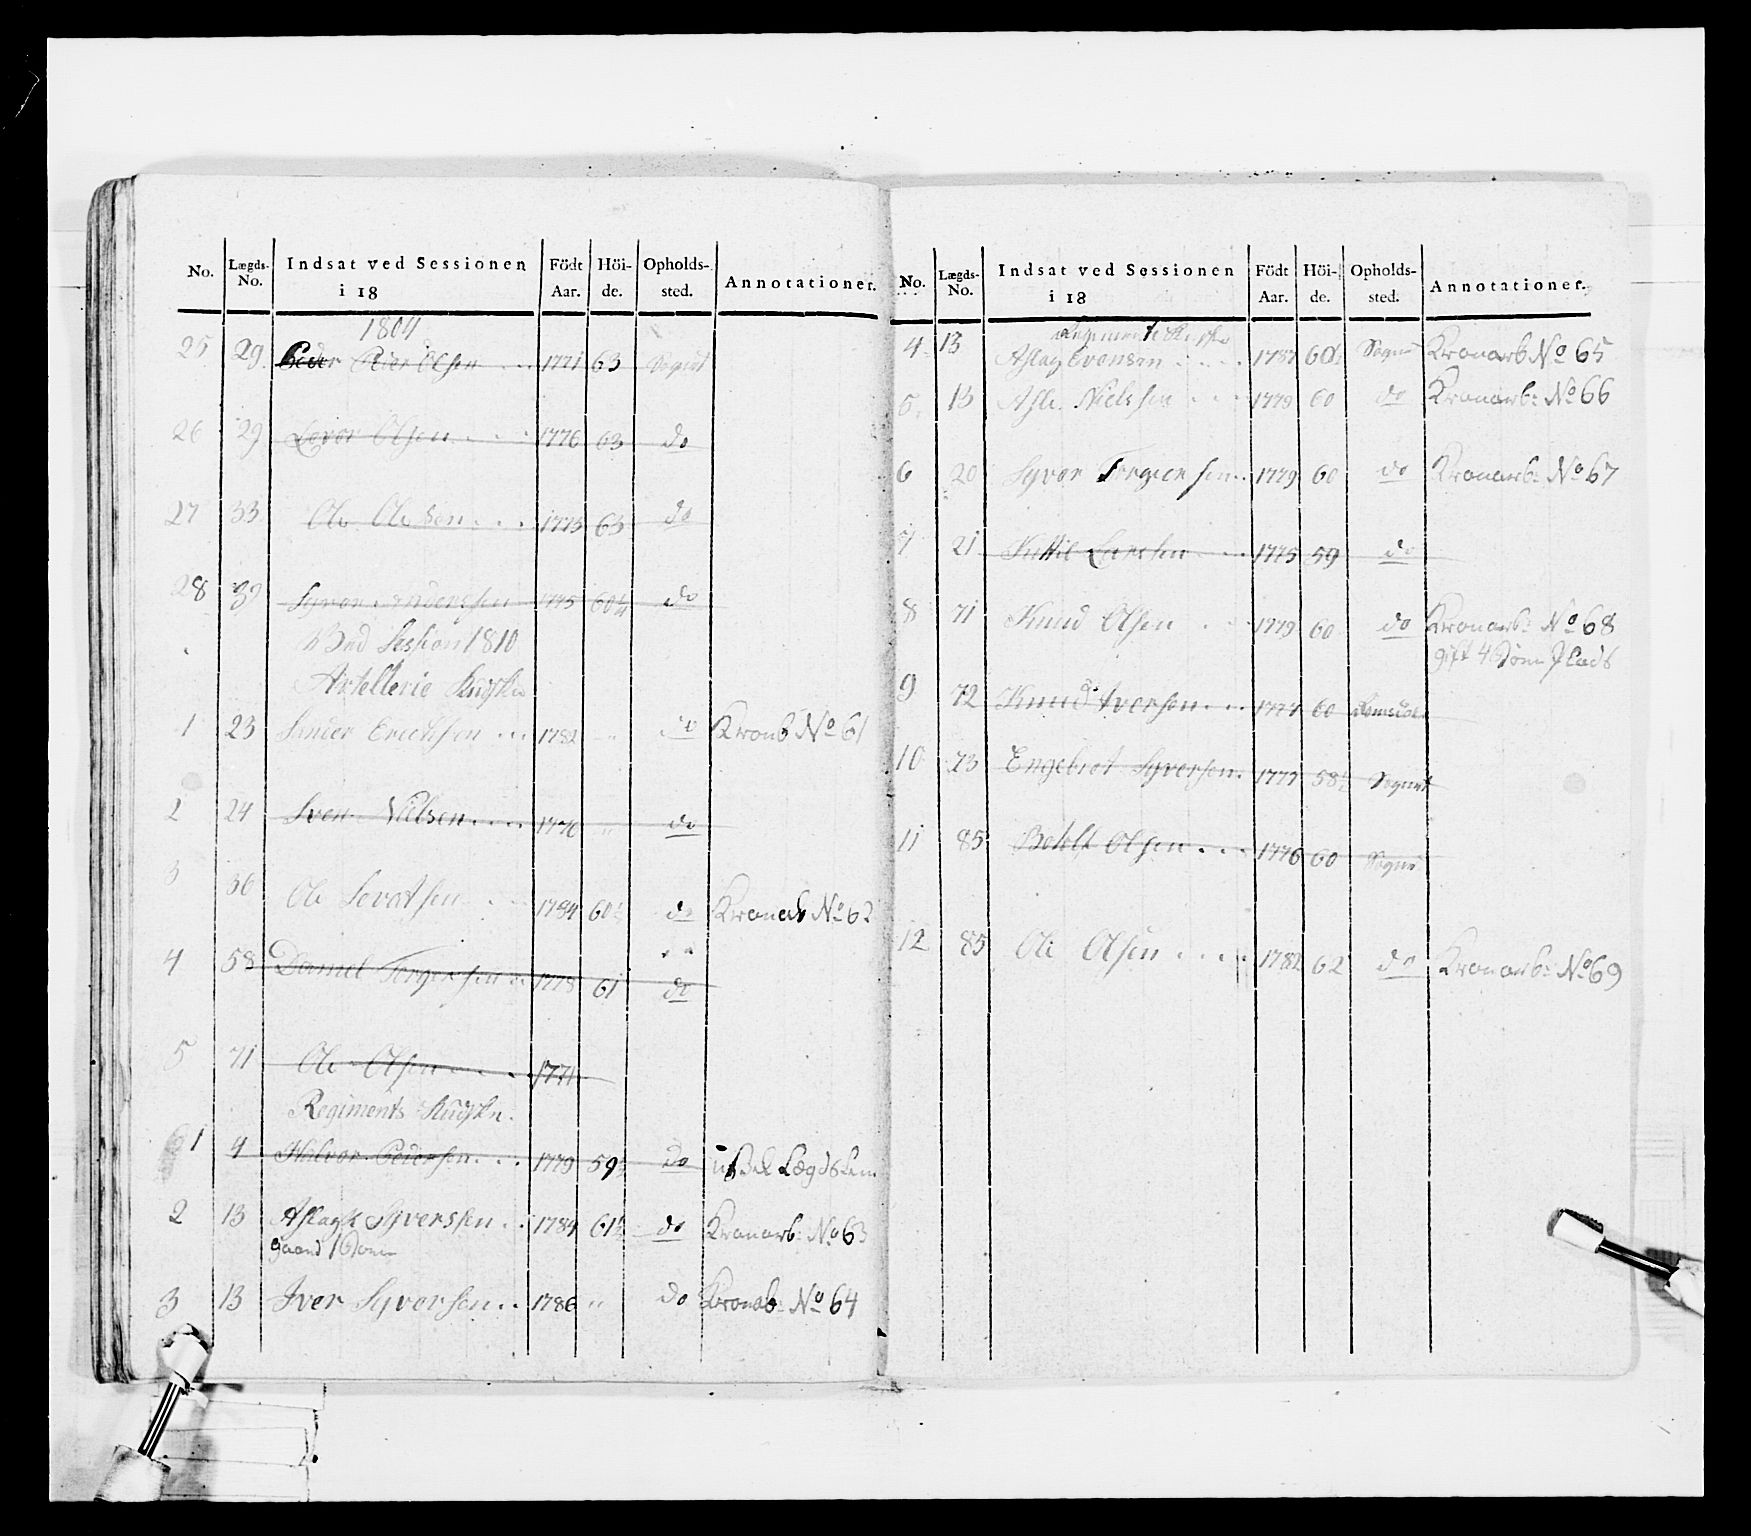 No. Lægds-No. Indsat ved Sessionen i 18 Födt Aar. Höi-de. Opholds-sted. Annotationer.
1804
25 29 Peder Olsen 1771 63 Sognet
26 29 Olsen 1776 63 do
27 33 Ole Olsen 1773 63 do
28 39 Syver Anderssen 1775 60¼ do
Ved Session 1810
Artellerie Kudske
1 23 Sander Erichsen 1782 " do Kronb No 61
2 24 Sven Nielsen 1776 " do
3 36 Ole 1784 60½ do Kronarb No 62
4 58 Daniel Torgersen 1778 61 do
5 71 Ole Olsen 1771
Regiments Kudske.
1 4 Halvor Pedersen 1779 59½ do Lægdslem
2 13 Aslag Syverssen 1784 61½ do Kronarb: No 63
3 13 Iver Syversen 1786 " do Kronarb: No 64
No. Lægds-No. Indsat ved Sessionen i 18 Födt Aar. Höi-de. Opholds-sted. Annotationer.
Regiments Kudske
4 13 Aslag Evensen 1787 60½ Sogne Kronarb No 65
5 13 Asle Nielssen 1779 60 do Kronarb: No 66
6 20 Syver Torgersen 1779 60 do Kronarb: No 67
7 21 Kittil Larssen 1775 59 do
8 71 Knud Olsen 1779 60 do Kronarb: No 68
gift 4
9 72 Knud Iversen 1777 60
10 73 Engebret Syversen 1777 58½ Sognet
11 85 Botolf Olsen 1776 60 Sogne
12 85 Ole Olsen 1782 62 do Kronarb: No 69